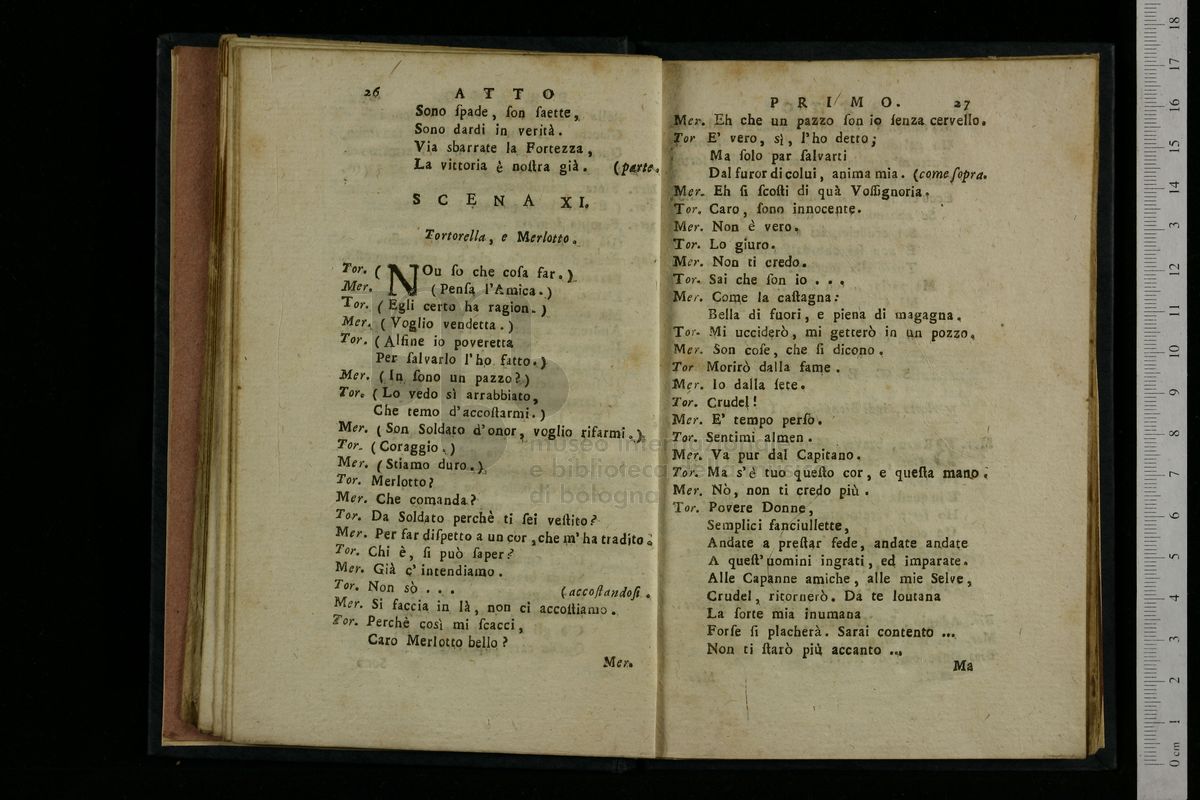 26 ATTO
Sono ſpade, ſon ſaette,
Sono dardi in verità.
Via sbarrate la Fortezza,
La vittoria è noſtra già. (parte.
SCENA XI.
Tortorella, e Merlotto.
Tor. ( NOu ſo che coſa far. )
Mer. (Penſa l'Amica.)
Tor. ( Egli certo ha ragion. )
Mer. ( Voglio vendetta. )
Tor. ( Alfine io poveretta
Per ſalvarlo l'ho fatto. )
Mer. ( In ſono un pazzo? )
Tor. ( Lo vedo sì arrabbiato,
Che temo d'accoſtarmi. )
Mer. ( Son Soldato d'onor, voglio rifarmi. )
Tor. (Coraggio. )
Mer. ( Stiamo duro. )
Tor. Merlotto?
Mer. Che comanda?
Tor. Da Soldato perchè ti ſei veſtito?
Mer. Per far diſpetto a un cor, che m'ha tradito.
Tor. Chi è, ſi può ſaper?
Mer. Già c'intendiamo.
Tor. Non sò . . . (accoſtandoſi.
Mer. Si faccia in là, non ci accoſtiamo.
Tor. Perchè così mi ſcacci,
Caro Merlotto bello?
Mer.
PRIMO. 27
Mer. Eh che un pazzo ſon io ſenza cervello.
Tor E' vero, sì, l'ho detto;
Ma ſolo par ſalvarti
Dal furor di colui, anima mia. (come ſopra.
Mer. Eh ſi ſcoſti di quà Voſſignoria.
Tor. Caro, ſono innocente.
Mer. Non è vero.
Tor. Lo giuro.
Mer. Non ti credo.
Tor. Sai che ſon io . . .
Mer. Come la caſtagna:
Bella di fuori, e piena di magagna.
Tor. Mi ucciderò, mi getterò in un pozzo.
Mer. Son coſe, che ſi dicono.
Tor Morirò dalla fame.
Mer. Io dalla ſete.
Tor. Crudel!
Mer. E' tempo perſo.
Tor. Sentimi almen.
Mer. Va pur dal Capitano.
Tor. Ma s'è tuo queſto cor, e queſta mano.
Mer. Nò, non ti credo più.
Tor. Povere Donne,
Semplici fanciullette,
Andate a preſtar fede, andate andate
A queſt'uomini ingrati, ed imparate.
Alle Capanne amiche, alle mie Selve,
Crudel, ritornerò. Da te loutana
La ſorte mia inumana
Forſe ſi placherà. Sarai contento ...
Non ti ſtarò più accanto ...
Ma
museo internazionale
e biblioteca della musica
di bologna
0 cm 1 2 3 4 5 6 7 8 9 10 11 12 13 14 15 16 17 18